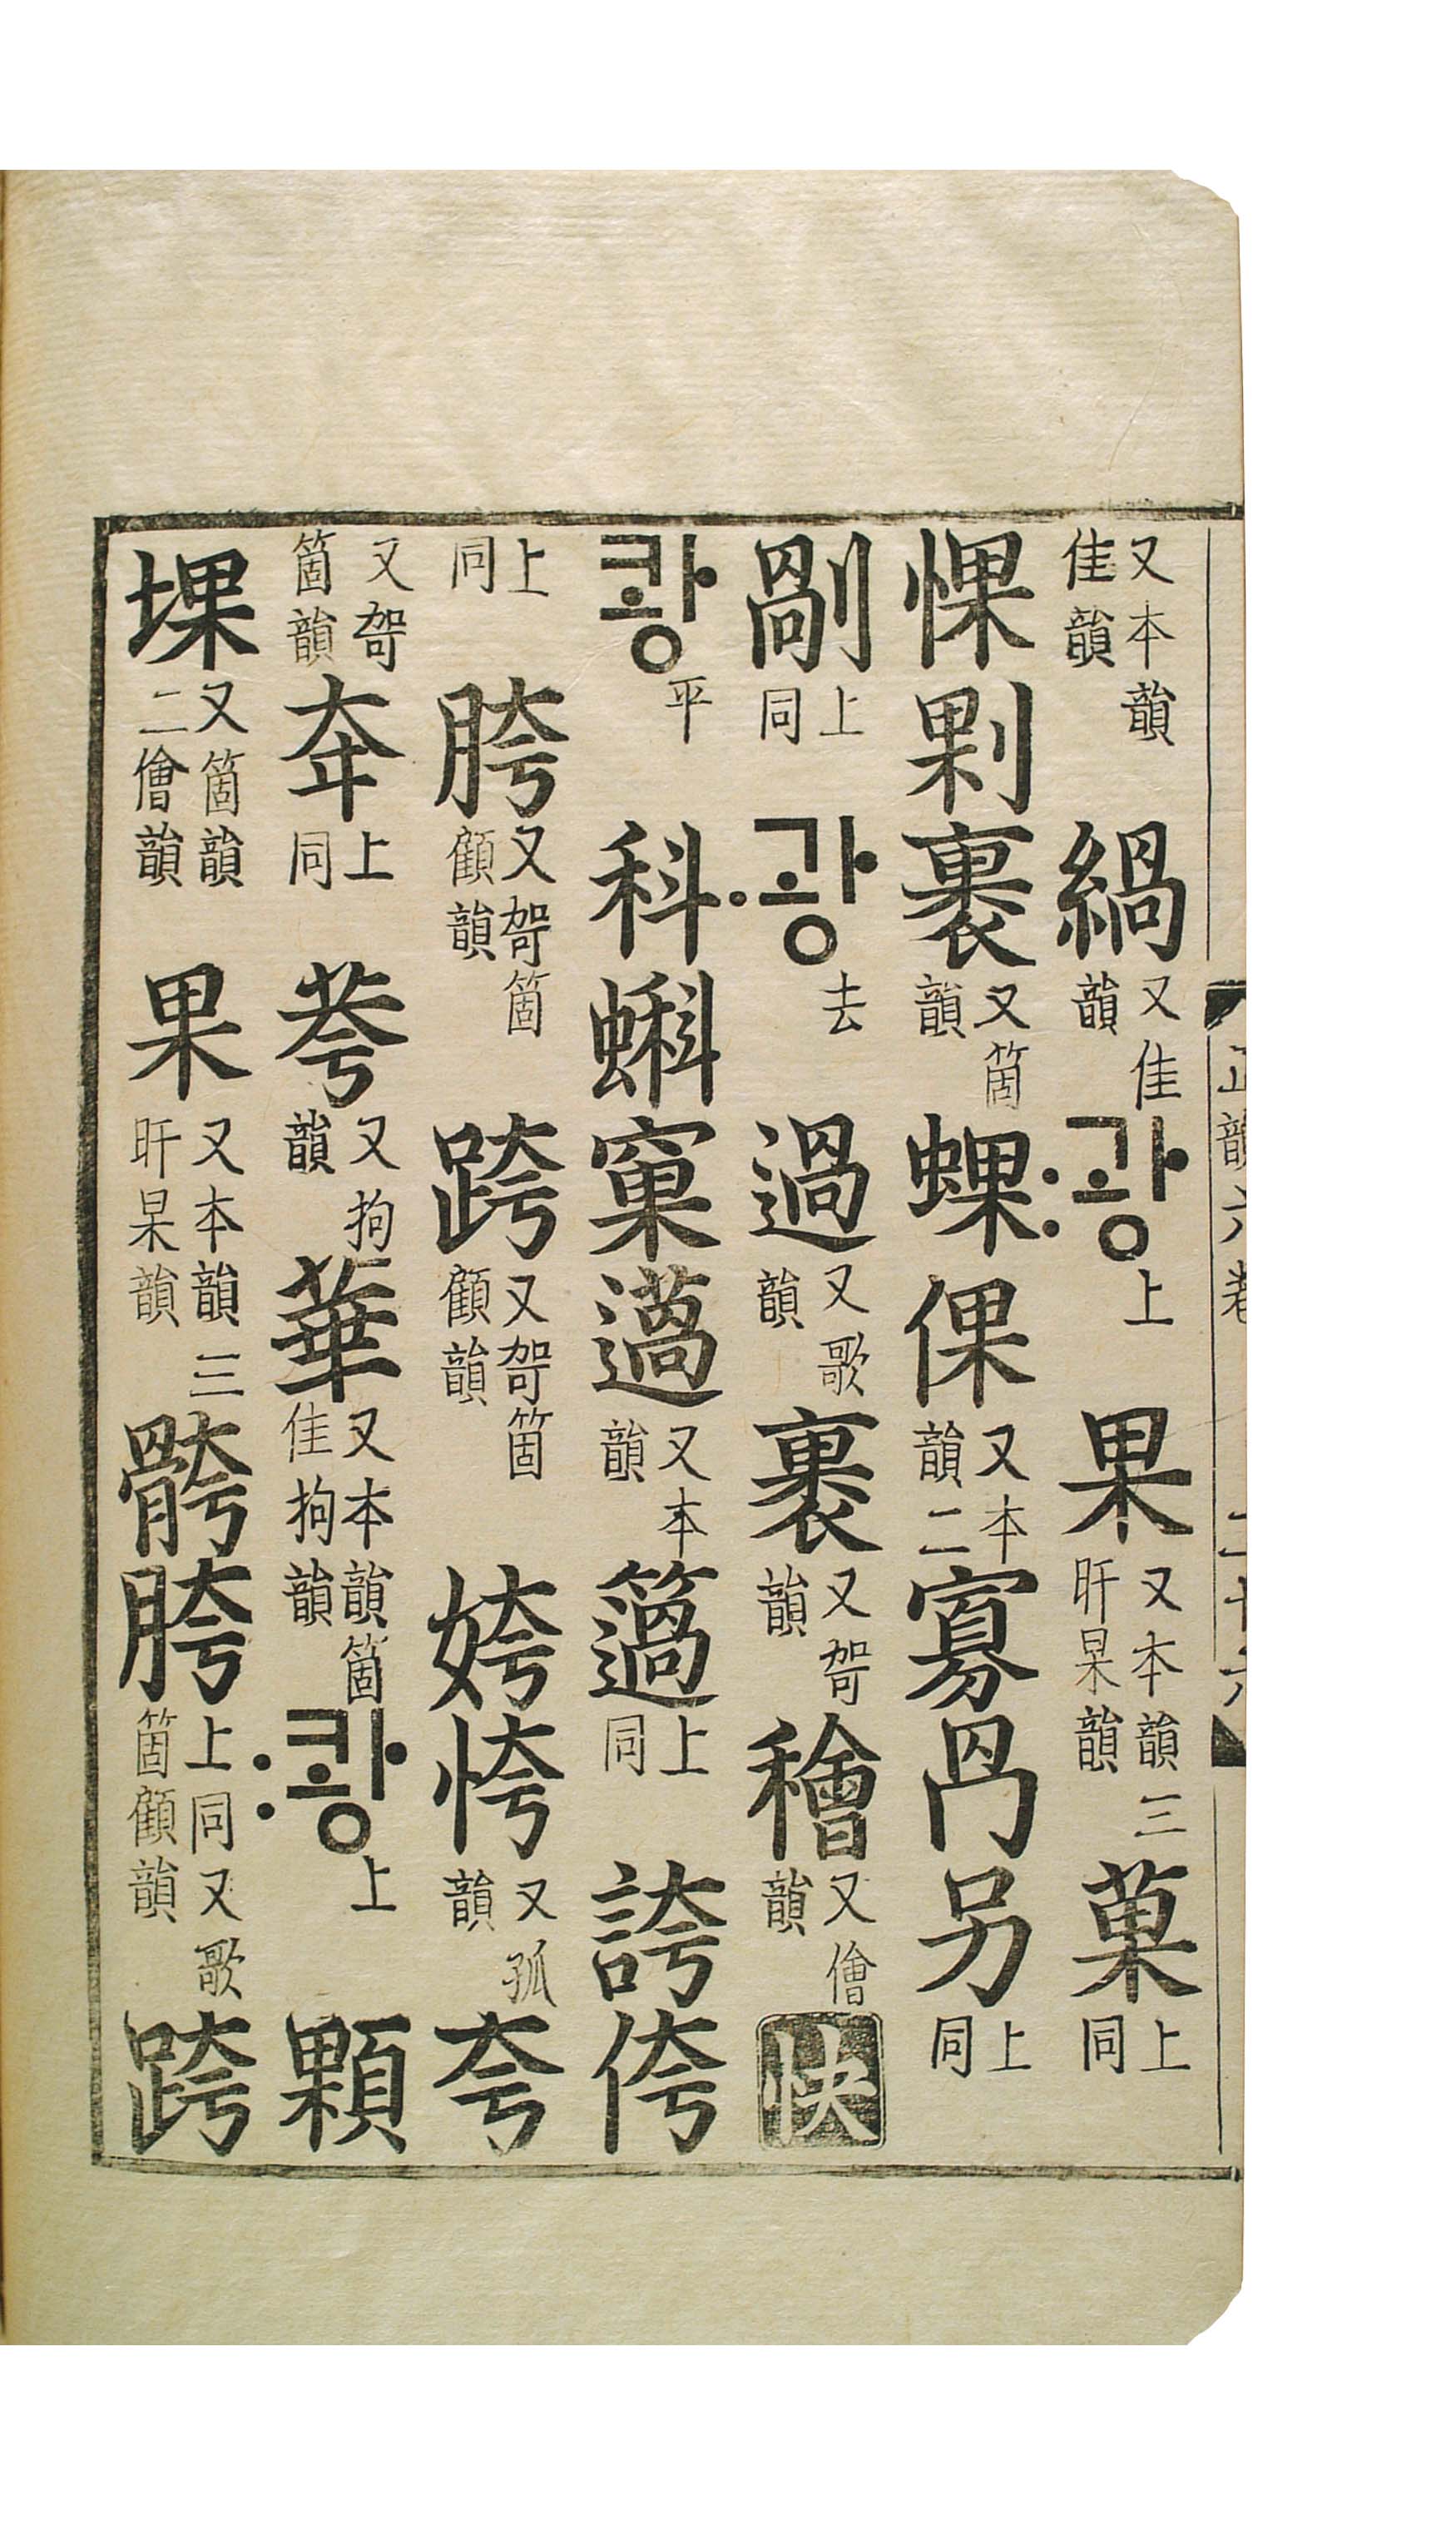 又本韻佳韻 緺又佳韻 〯광上 果又本韻三旰杲韻 菓上同
惈剽裹又箇韻 蜾倮又本韻二 寡冎另上同
剮上同 〮광去 過又歌韻 裹又哿韻 穭又儈韻 快
쾅平 科蝌窠薖又本韻 簻上同 誇侉
上同 胯又哿箇顧韻 跨又哿箇顧韻 姱恗又孤韻 夸
又哿箇韻 㚏上同 荂又拘韻 華又本韻箇佳拘韻 〯쾅上 顆
堁又箇韻二儈韻 果又本韻三旰杲韻 骻胯上同又歌箇顧韻 跨